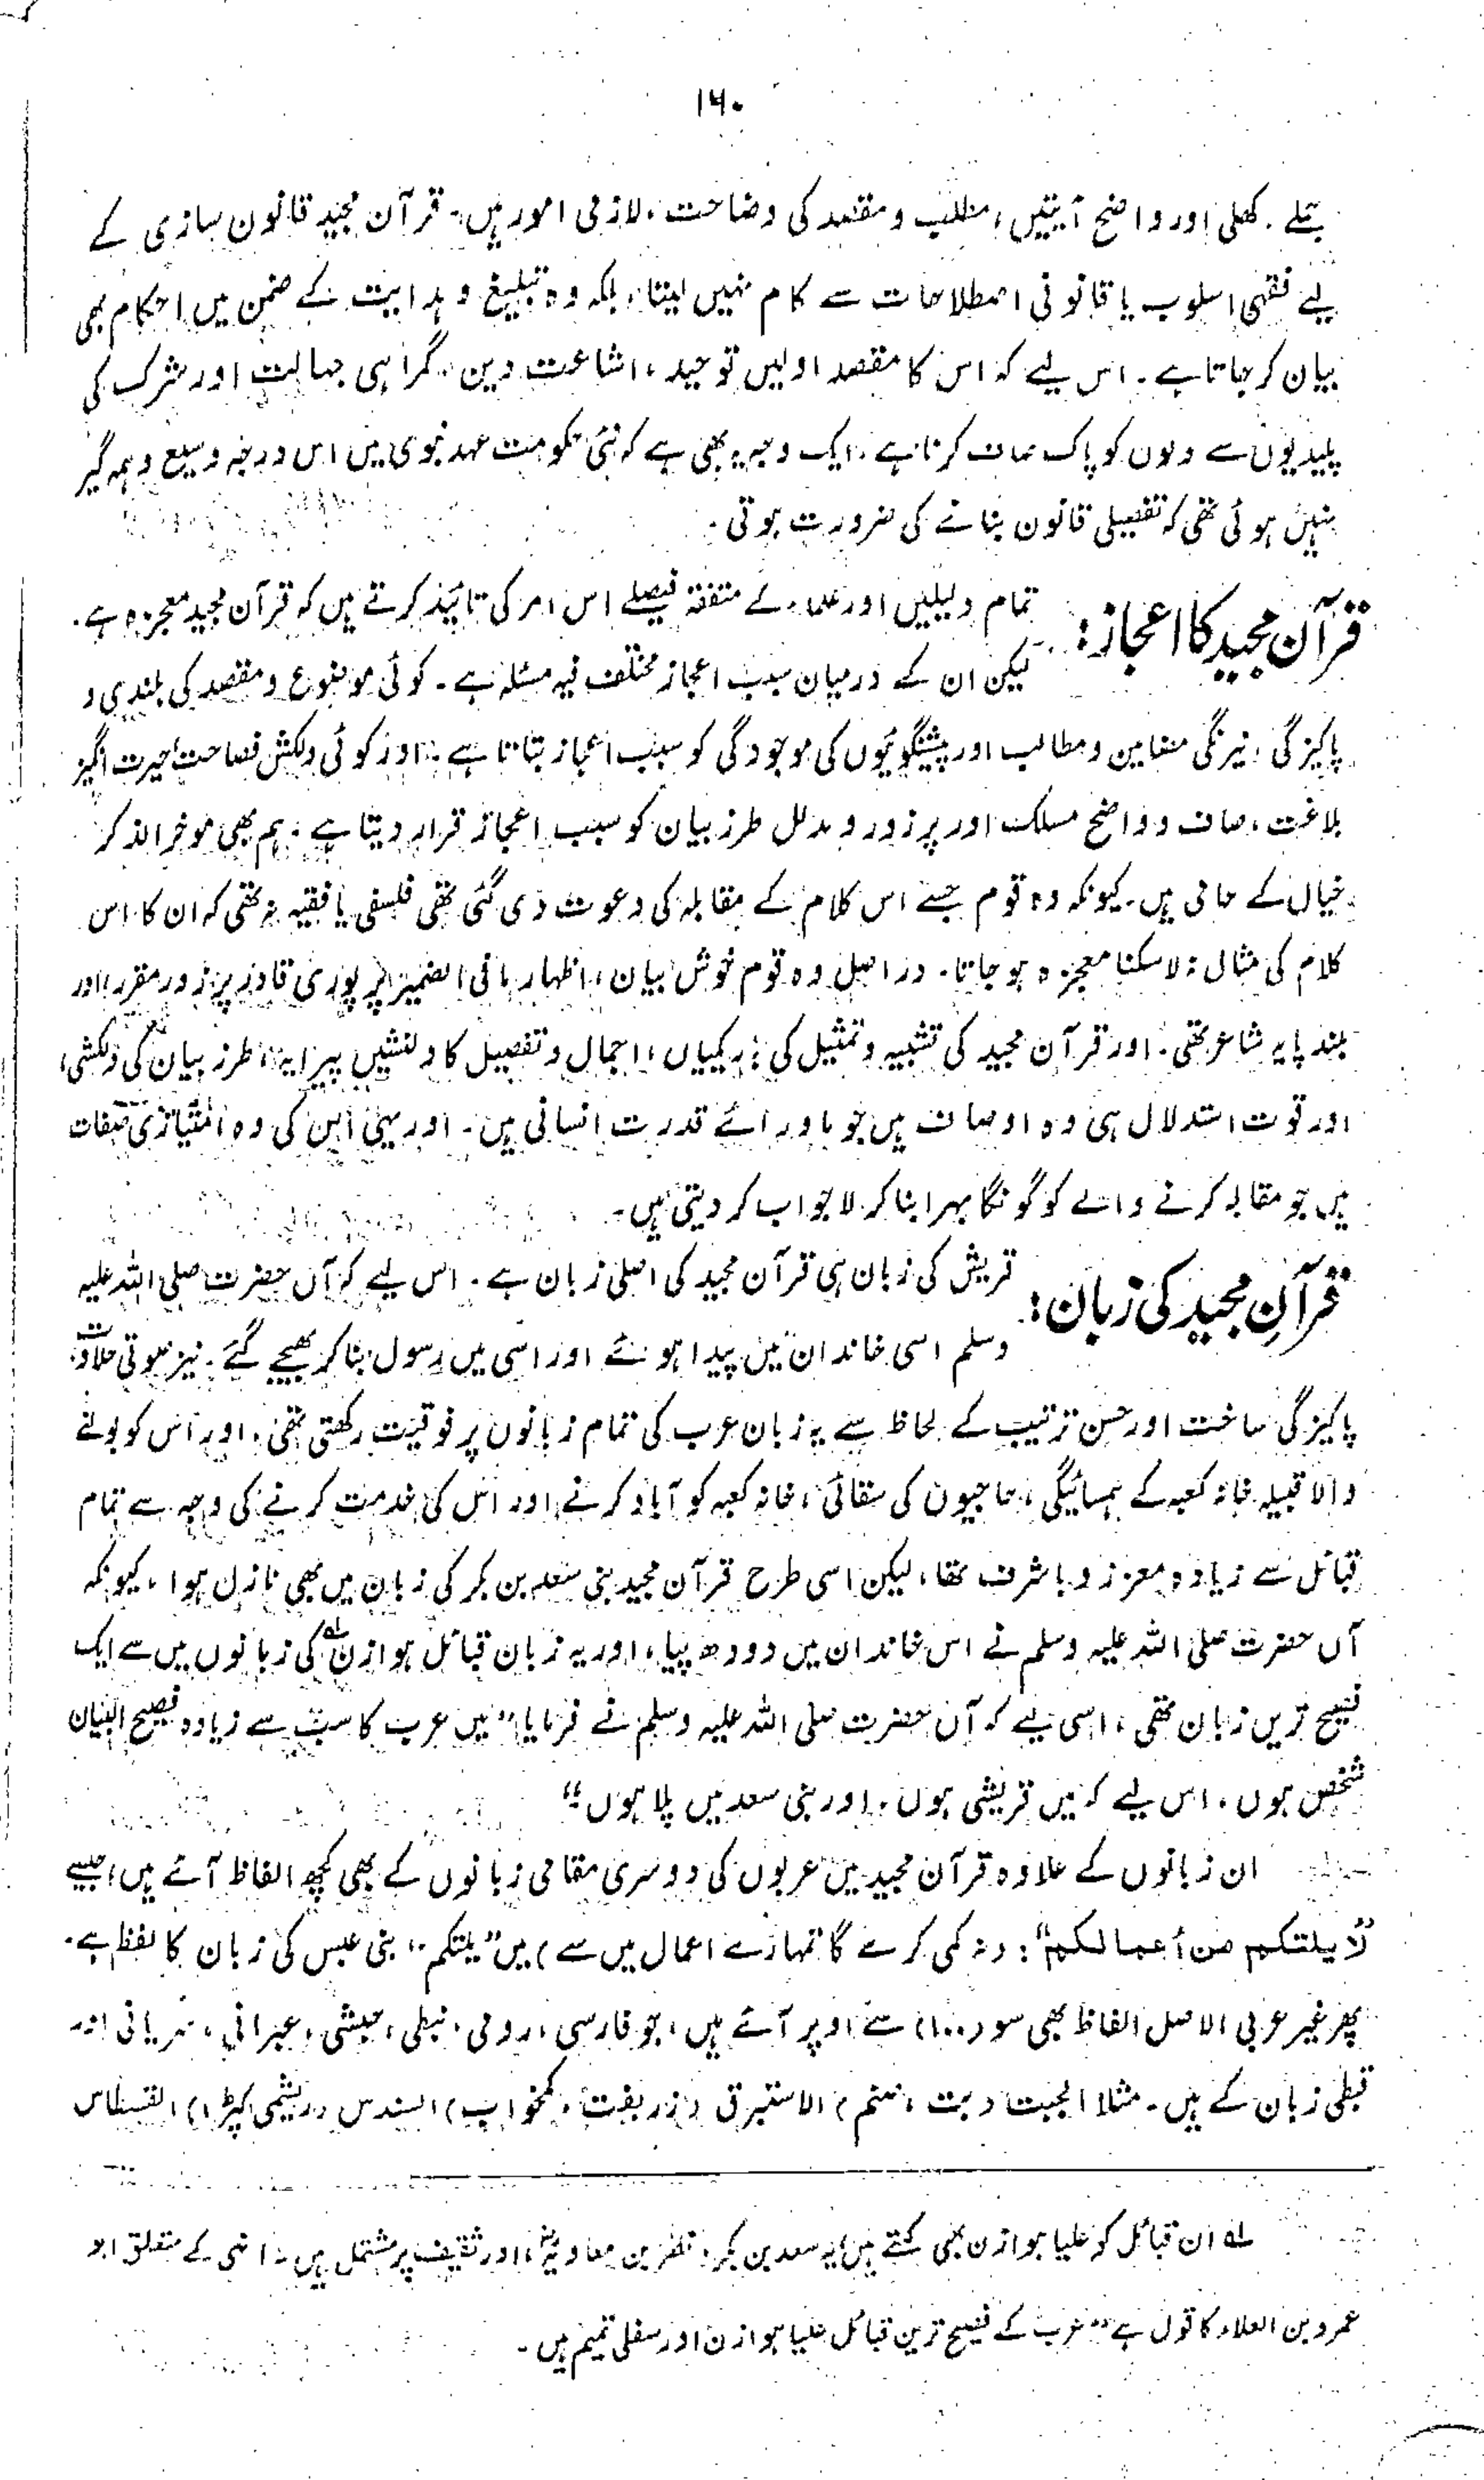 ۱۶۰
جملے، کھلی اور واضح آیتیں، مطلب و مقصد کی وضاحت، لازمی امور ہیں۔ قرآن مجید قانون سازی کے
لیے فقہی اسلوب یا قانونی اصطلاحات سے کام نہیں لیتا، بلکہ وہ تبلیغ و ہدایت کے ضمن میں احکام بھی
بیان کر جاتا ہے۔ اس لیے کہ اس کا مقصد اولیں توحید، اشاعت دین، گمراہی جہالت اور شرک کی
پلیدیوں سے دلوں کو پاک صاف کرنا ہے، ایک وجہ یہ بھی ہے کہ نئی حکومت عہد نبوی میں اس درجہ وسیع و ہمہ گیر
نہیں ہوئی تھی کہ تفصیلی قانون بنانے کی ضرورت ہوتی۔
قرآن مجید کا اعجاز: تمام دلیلیں اور علماء کے متفقہ فیصلے اس امر کی تائید کرتے ہیں کہ قرآن مجید معجزہ ہے۔
لیکن ان کے درمیان سبب اعجاز مختلف فیہ مسئلہ ہے۔ کوئی موضوع و مقصد کی بلندی و
پاکیزگی، نیرنگی مضامین و مطالب اور پیشنگوئیوں کی موجودگی کو سبب اعجاز بتاتا ہے۔ اور کوئی دلکش فصاحت، حیرت انگیز
بلاغت، صاف و واضح مسلک اور پرزور و مدلل طرز بیان کو سبب اعجاز قرار دیتا ہے۔ ہم بھی موخر الذکر
خیال کے حامی ہیں۔ کیونکہ وہ قوم جسے اس کلام کے مقابلہ کی دعوت دی گئی تھی فلسفی یا فقیہ نہ تھی کہ ان کا اس
کلام کی مثال نہ لا سکنا معجزہ ہو جاتا۔ دراصل وہ قوم خوش بیان، اظہار مافی الضمیر پر پوری قادر، پرزور مقرر، اور
بلند پایہ شاعر تھی۔ اور قرآن مجید کی تشبیہ و تمثیل کی باریکیاں، اجمال و تفصیل کا دلنشیں پیرایہ، طرز بیان کی دلکشی،
اور قوت استدلال ہی وہ اوصاف ہیں جو ماورائے قدرت انسانی ہیں۔ اور یہی اس کی وہ امتیازی صفات
ہیں جو مقابلہ کرنے والے کو گونگا بہرا بنا کر لاجواب کر دیتی ہیں۔
قرآنِ مجید کی زبان: قریش کی زبان ہی قرآن مجید کی اصلی زبان ہے۔ اس لیے کہ آں حضرت صلی اللہ علیہ
وسلم اسی خاندان میں پیدا ہوئے اور اسی میں رسول بنا کر بھیجے گئے۔ نیز صوتی حلاوت،
پاکیزگی ساخت اور حسن ترتیب کے لحاظ سے یہ زبان عرب کی تمام زبانوں پر فوقیت رکھتی تھی، اور اس کو بولنے
والا قبیلہ خانہ کعبہ کے ہمسائیگی، حاجیوں کی سقائی، خانہ کعبہ کو آباد کرنے، اور اس کی خدمت کرنے کی وجہ سے تمام
قبائل سے زیادہ معزز و باشرف تھا، لیکن اسی طرح قرآن مجید بنی سعد بن بکر کی زبان میں بھی نازل ہوا، کیونکہ
آں حضرت صلی اللہ علیہ وسلم نے اس خاندان میں دودھ پیا، اور یہ زبان قبائل ہوازن لہ کی زبانوں میں سے ایک
فصیح ترین زبان تھی، اسی لیے کہ آں حضرت صلی اللہ علیہ وسلم نے فرمایا ”میں عرب کا سب سے زیادہ فصیح البیان
شخص ہوں، اس لیے کہ میں قریشی ہوں، اور بنی سعد میں پلا ہوں“
ان زبانوں کے علاوہ قرآن مجید میں عربوں کی دوسری مقامی زبانوں کے بھی کچھ الفاظ آئے ہیں، جیسے
”لا يلتكم من أعمالكم“: (نہ کمی کرے گا تمہارے اعمال میں سے) میں ”یلتکم“ بنی عبس کی زبان کا لفظ ہے۔
پھر غیر عربی الاصل الفاظ بھی سو (۱۰۰) سے اوپر آئے ہیں، جو فارسی، رومی، نبطی، حبشی، عبرانی، سریانی اور
قبطی زبان کے ہیں۔ مثلا الجبت (بت، صنم) الاستبرق (زربفت، کمخواب) السندس (ریشمی کپڑا) القسطاس
لہ ان قبائل کو علیا ہوازن بھی کہتے ہیں، یہ سعد بن بکر، نصر بن معاویہ، اور ثقیف پر مشتمل ہیں۔ انہی کے متعلق ابو
عمرو بن العلاء کا قول ہے ”عرب کے فصیح ترین قبائل علیا ہوازن اور سفلی تمیم ہیں۔